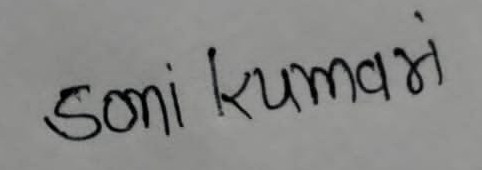 soni kumari